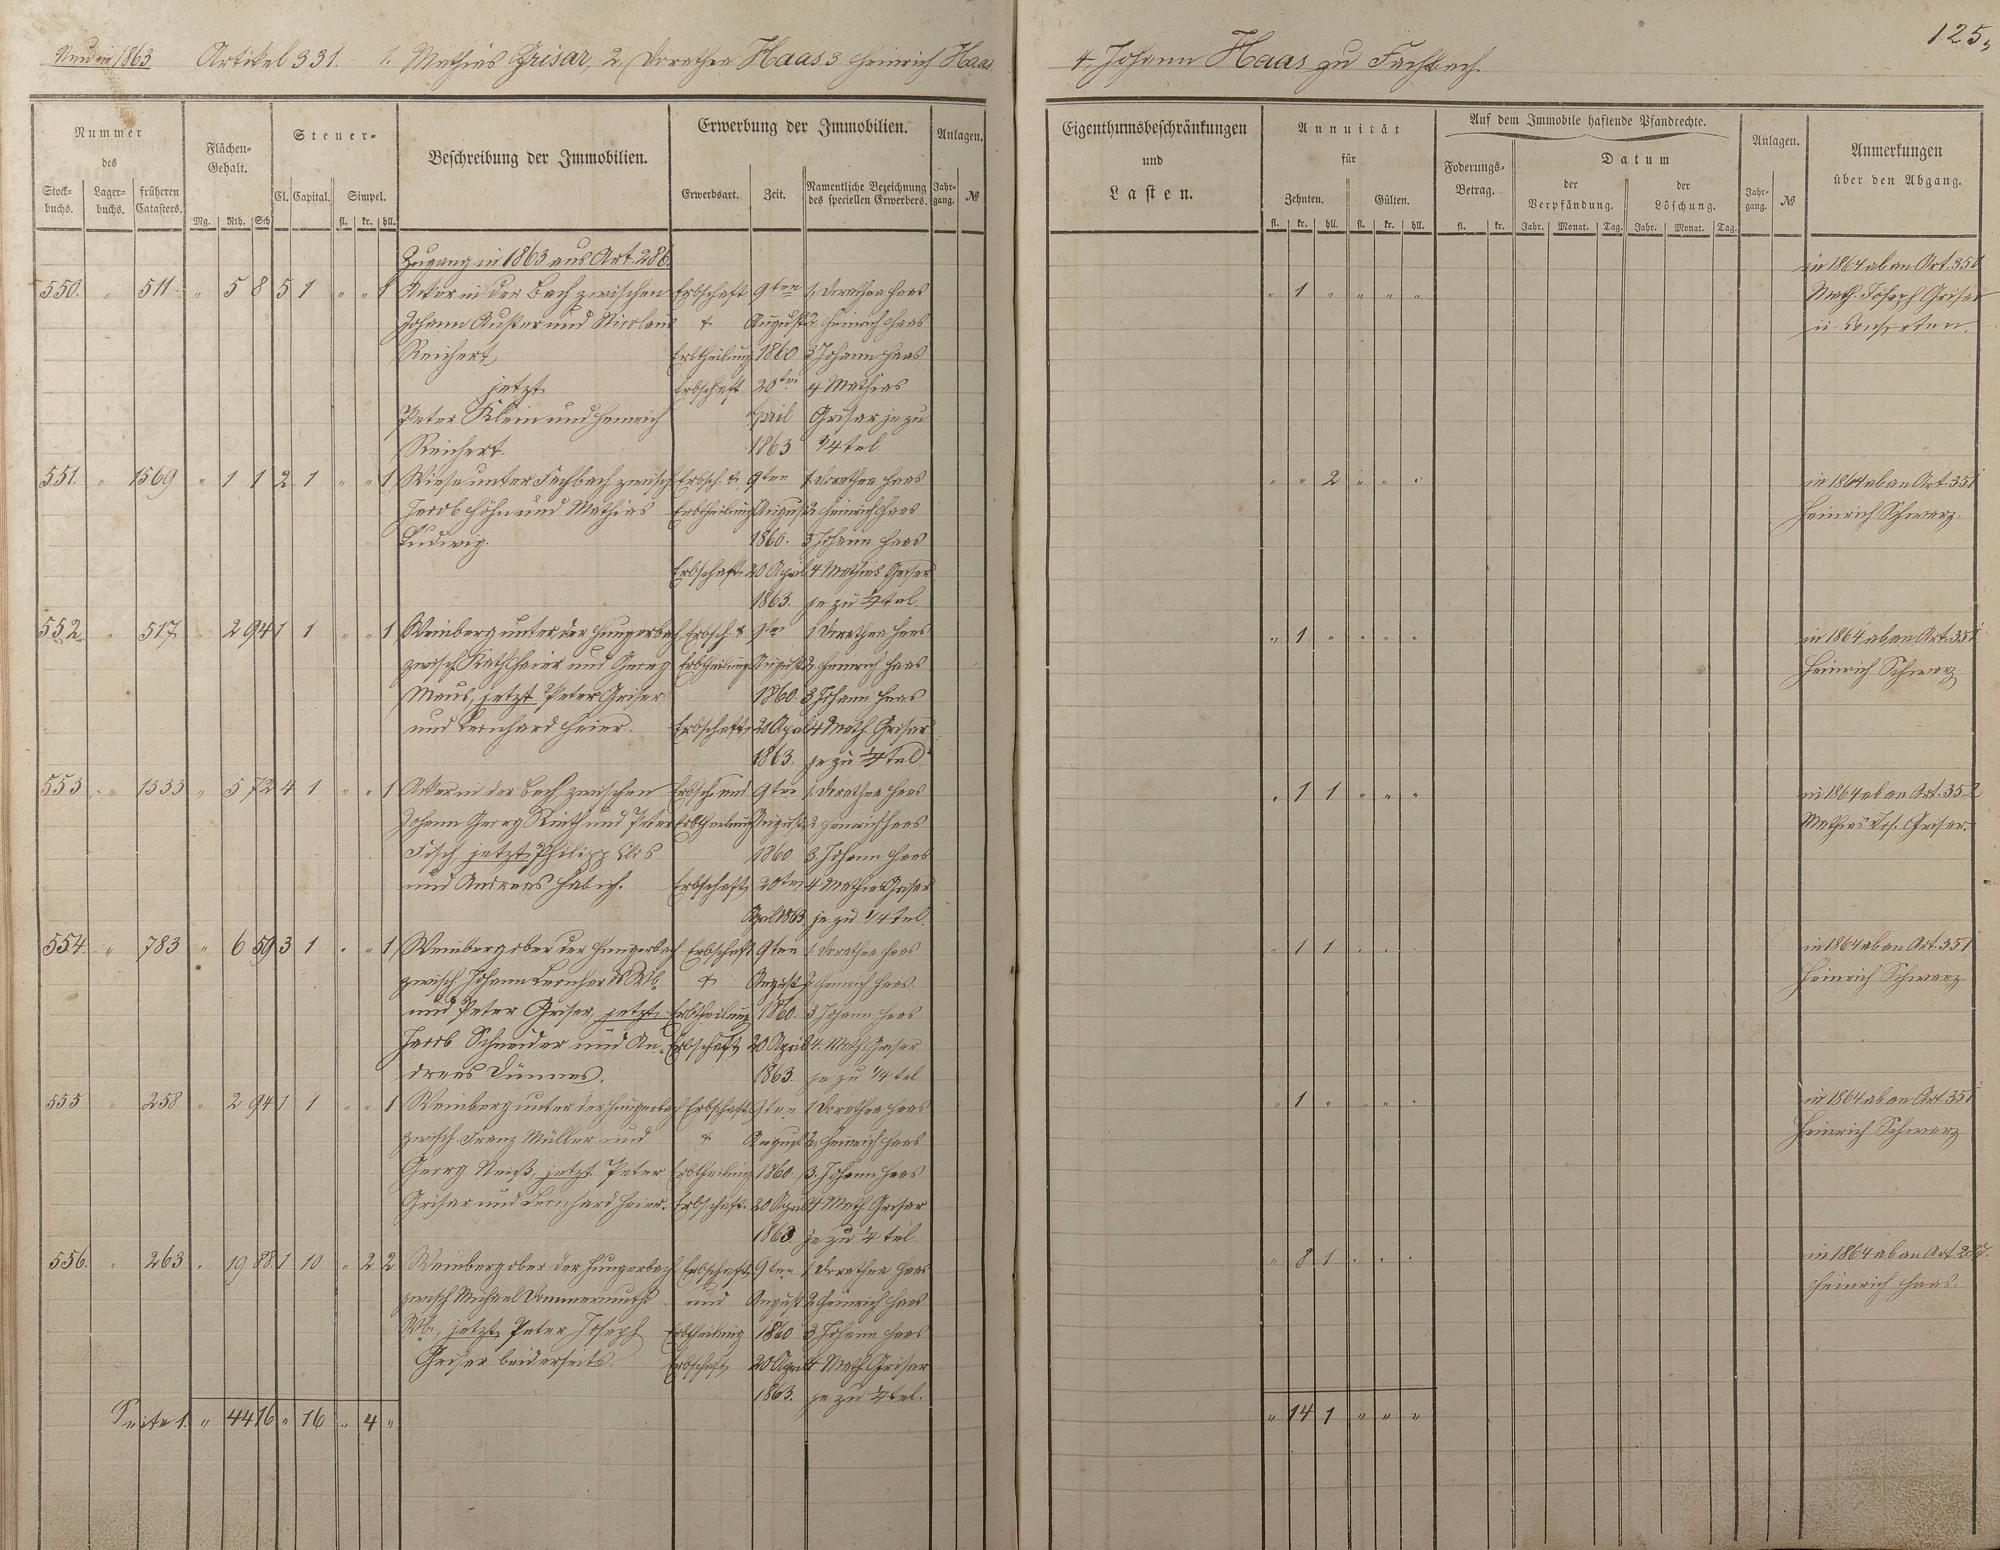 Neu in 1863 Artikel 331. 1. Mathias Grisar, 2. Dorothea Haas 3. Heinrich Haas
4. Johann Haas zu Fachbach.
125,
Nummer des
Stockbuchs. Lagerbuchs. früheren Catasters.
Flächen-Gehalt.
Mg. Rth. Sch
Steuer-
Cl. Capital. Simpel.
fl. kr. hll.
Beschreibung der Immobilien.
Erwerbung der Immobilien.
Erwerbsart. Zeit. Namentliche Bezeichnung des speciellen Erwerbers.
Anlagen.
Jahrgang. №
Eigenthumsbeschränkungen
und
Lasten.
Annuität
für
Zehnten. Gülten.
fl. kr. hll. fl. kr. hll.
Auf dem Immobile haftende Pfandrechte.
Foderungs-Betrag.
fl. kr.
Datum
der Verpfändung. der Löschung.
Jahr. Monat. Tag. Jahr. Monat. Tag.
Anlagen.
Jahrgang. №
Anmerkungen
über den Abgang.
Zugang in 1863 aus Art. 286.
550. " 511 " 5 8 5 1 " " 1 Acker in der Bach zwischen Erbschaft 9ten 1. Dorothea Haas " 1 " " " "
Johann Auster und Nicolaus & August 2 Heinrich Haas
Reichert, Erbtheilung 1860 3 Johann Haas
jetzt Erbschaft 20ten 4 Mathias
Peter Klein und Heinrich April Grisar je zu
Reichert. 1863 1/4tel
in 1864 ab an Art. 350
Math. Joseph Grisar
u. Consorten.
551. " 1569 " 1 1 2 1 " " 1 Wiese unter Fachbach zwisch Erbsch. & 9ten 1. Dorothea Haas " " 2 " " "
Jacob Höhn und Mathias Erbtheilung August 2 Heinrich Haas
Ludwig. 1860. 3 Johann Haas
Erbschaft 20 April 4 Mathias Grisar
1863. je zu 1/4tel.
in 1864 ab an Art. 351
Heinrich Schwarz.
552. " 517 " 2 94 1 1 " " 1 Weinberg unter der Hungerbach Erbsch. & 9ten 1 Dorothea Haas " 1 " " " "
zwisch. und Georg Erbtheilung August 2 Heinrich Haas
Maus, jetzt Peter Grisar 1860. 3 Johann Haas
und Bernhard Heier. Erbschaft 20 April 4 Math. Grisar
1863. je zu 1/4tel
in 1864 ab an Art. 351
Heinrich Schwarz
553 " 1333 " 5 72 4 1 " " 1 Acker in der Bach zwischen Erbsch. und 9ten 1. Dorothea Haas " 1 1 " " "
Johann Georg und Peter Erbtheilung August 2 Heinrich Haas
Fisch, jetzt Philipp
und Andreas Habich. 1860 3. Johann Haas
Erbschaft 20ten 4 Mathias Grisar
April 1863 je zu 1/4tel.
in 1864 ab an Art. 352
Mathias Jos. Grisar.
554. " 783 " 6 59 3 1 " " 1 Weinberg ober der Hungerbach Erbschaft 9ten 1. Dorothea Haas " 1 1 " " "
zwisch Johann Wb. & August 2 Heinrich Haas.
und Peter Grisar, jetzt Erbtheilung 1860. 3 Johann Haas
Jacob Schneider und An- Erbschaft 20 April 4. Math. Grisar
dreas Dünnes. 1863. je zu 1/4tel
in 1864 ab an Art. 351
Heinrich Schwarz
555 " 258 " 2 94 1 1 " " 1 Weinberg unter der Hungerbach Erbschaft 9ten 1 Dorothea Haas " 1 " " " "
zwisch. Franz Müller und & August 2. Heinrich Haas
Georg jetzt Peter Erbtheilung 1860. 3. Johann Haas
Grisar und Bernhard Heier. Erbschaft. 20 April 4 Math. Grisar
1863 je zu 1/4tel
in 1864 ab an Art. 351
Heinrich Schwarz
556. " 263 " 19 88 1 10 " 2 2 Weinberg ober der Hungerbach Erbschaft 9ten 1 Dorothea Haas " 8 1 " " "
zwisch Michael Dommermuths und August 2 Heinrich Haas
Wb., jetzt Peter Joseph Erbtheilung 1860 3 Johann Haas
Grisar beiderseits. Erbschaft 20 April 4 Math. Grisar
1863. je zu 1/4tel.
in 1864 ab an Art. 287.
Heinrich Haas.
Seite 1. " 44 16 " 16 " 4 " " 14 1 " " "